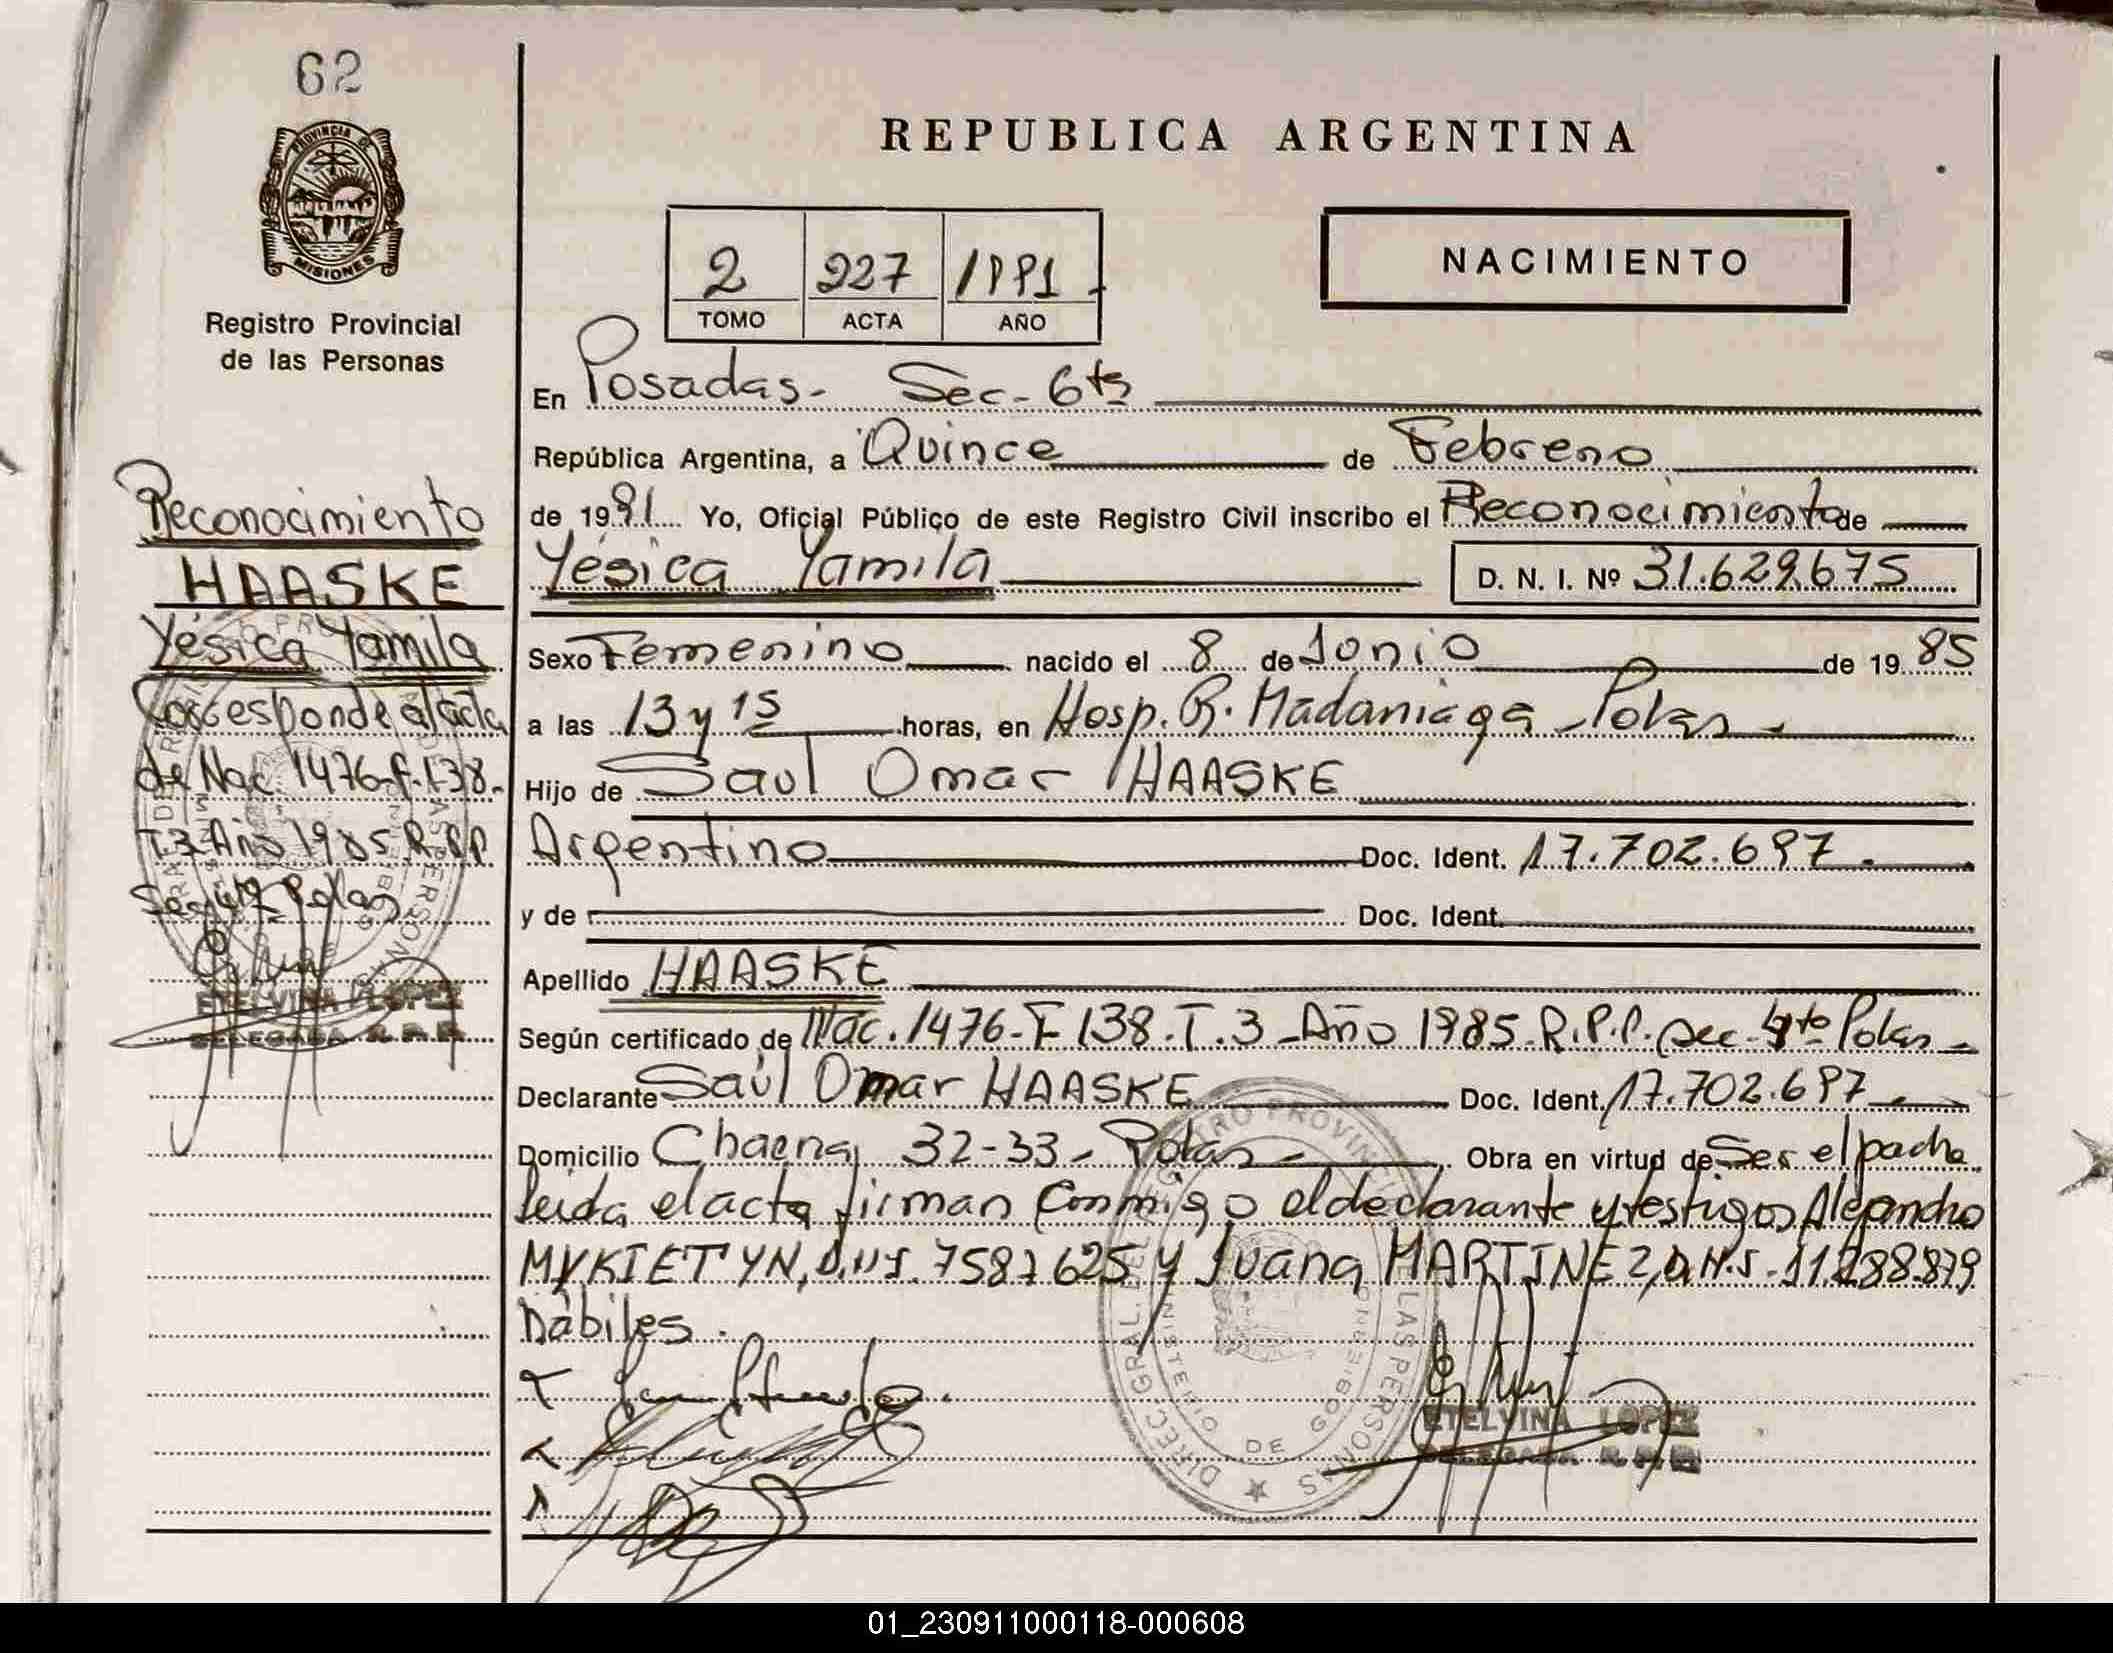 62
PROVINCIA DE
MISIONES
Registro Provincial
de las Personas
Reconocimiento
HAASKE
Yésica Yamila
Corresponde al acta
de Nac. 1476-F.138-
T.3 Año 1985 R.P.P.
Sec. 4ta Pdas
ETELVINA LOPEZ
DELEGADA R.P.P.
REPUBLICA ARGENTINA
2 227 1991.
TOMO ACTA AÑO
NACIMIENTO
En Posadas- Sec- 6ta
República Argentina, a Quince de Febrero
de 1991 Yo, Oficial Público de este Registro Civil inscribo el Reconocimiento de
Yésica Yamila D. N. I. Nº 31.629.675
Sexo Femenino nacido el 8 de Junio de 1985
a las 13 y 15 horas, en Hosp. R. Madariaga - Pdas -
Hijo de Saul Omar HAASKE
Argentino Doc. Ident. 17.702.697.
y de Doc. Ident.
Apellido HAASKE
Según certificado de Nac. 1476-F 138-T.3-Año 1985-R.P.P. Sec. 4to Pdas-
Declarante Saúl Omar HAASKE Doc. Ident. 17.702.697
Domicilio Chacra 32-33- Pdas- Obra en virtud de Ser el padre
leida el acta firman conmigo el declarante y testigos Alejandro
MYKIETYN, D.N.I. 7587625 y Juana MARTINEZ, D.N.I. 11288879
hábiles.
DIREC. GRAL. DEL REGISTRO PROVINCIAL DE LAS PERSONAS
MINISTERIO DE GOBIERNO
ETELVINA LOPEZ
DELEGADA R.P.P.
01_230911000118-000608